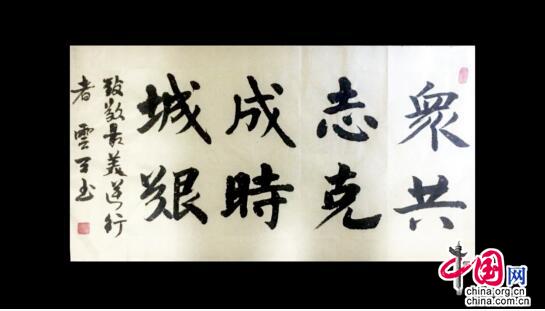 衆志成城
共克時艱
致敬最美逆行
者 雲 书
中国网
china.org.cn
china.com.cn